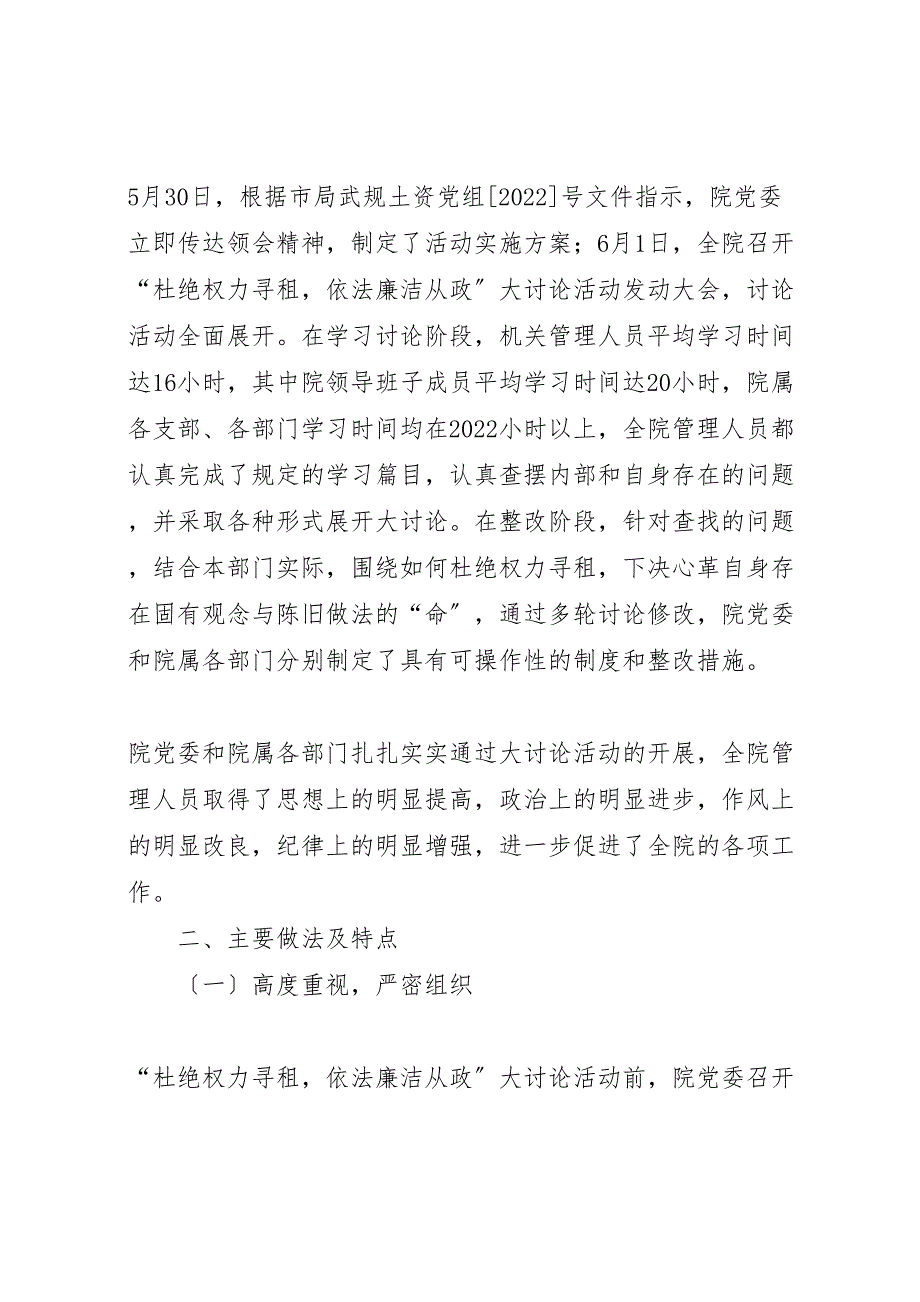 5月30日，根据市局武规土资党组[2022]号文件指示，院党委
立即传达领会精神，制定了活动实施方案；6月1日，全院召开
“杜绝权力寻租，依法廉洁从政〞大讨论活动发动大会，讨论
活动全面展开。在学习讨论阶段，机关管理人员平均学习时间
达16小时，其中院领导班子成员平均学习时间达20小时，院属
各支部、各部门学习时间均在2022小时以上，全院管理人员都
认真完成了规定的学习篇目，认真查摆内部和自身存在的问题
，并采取各种形式展开大讨论。在整改阶段，针对查找的问题
，结合本部门实际，围绕如何杜绝权力寻租，下决心革自身存
在固有观念与陈旧做法的“命〞，通过多轮讨论修改，院党委
和院属各部门分别制定了具有可操作性的制度和整改措施。
院党委和院属各部门扎扎实实通过大讨论活动的开展，全院管
理人员取得了思想上的明显提高，政治上的明显进步，作风上
的明显改良，纪律上的明显增强，进一步促进了全院的各项工
作。
二、主要做法及特点
〔一〕高度重视，严密组织
“杜绝权力寻租，依法廉洁从政〞大讨论活动前，院党委召开